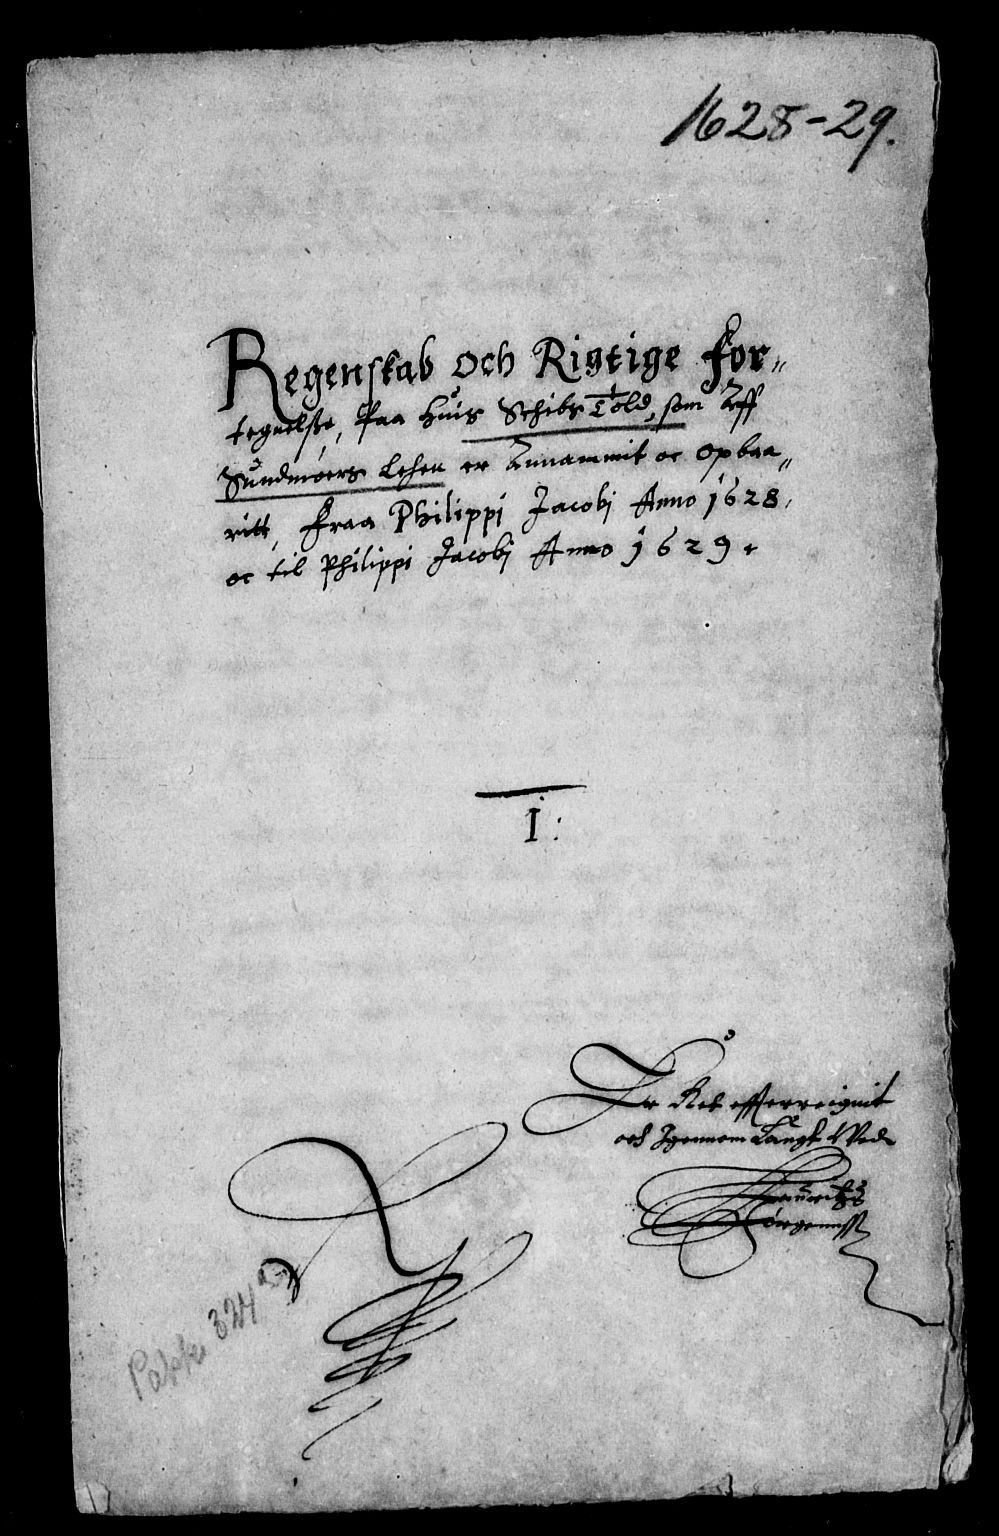 1628-29.
Regenskab och Rigtige For„
tegnelsse, Paa huis Schibs Told, som Aff
Sundmøers Lehen er Annammit oc opbaa„
ritt, Fraa Philippi Jacobj Anno 1628,
oc til Philippi Jacobj Anno 1629.
I:
Er Ret offuerreignit
och Igennem Laugt Wed
Lauritz
Jørgennss
Pakke 324